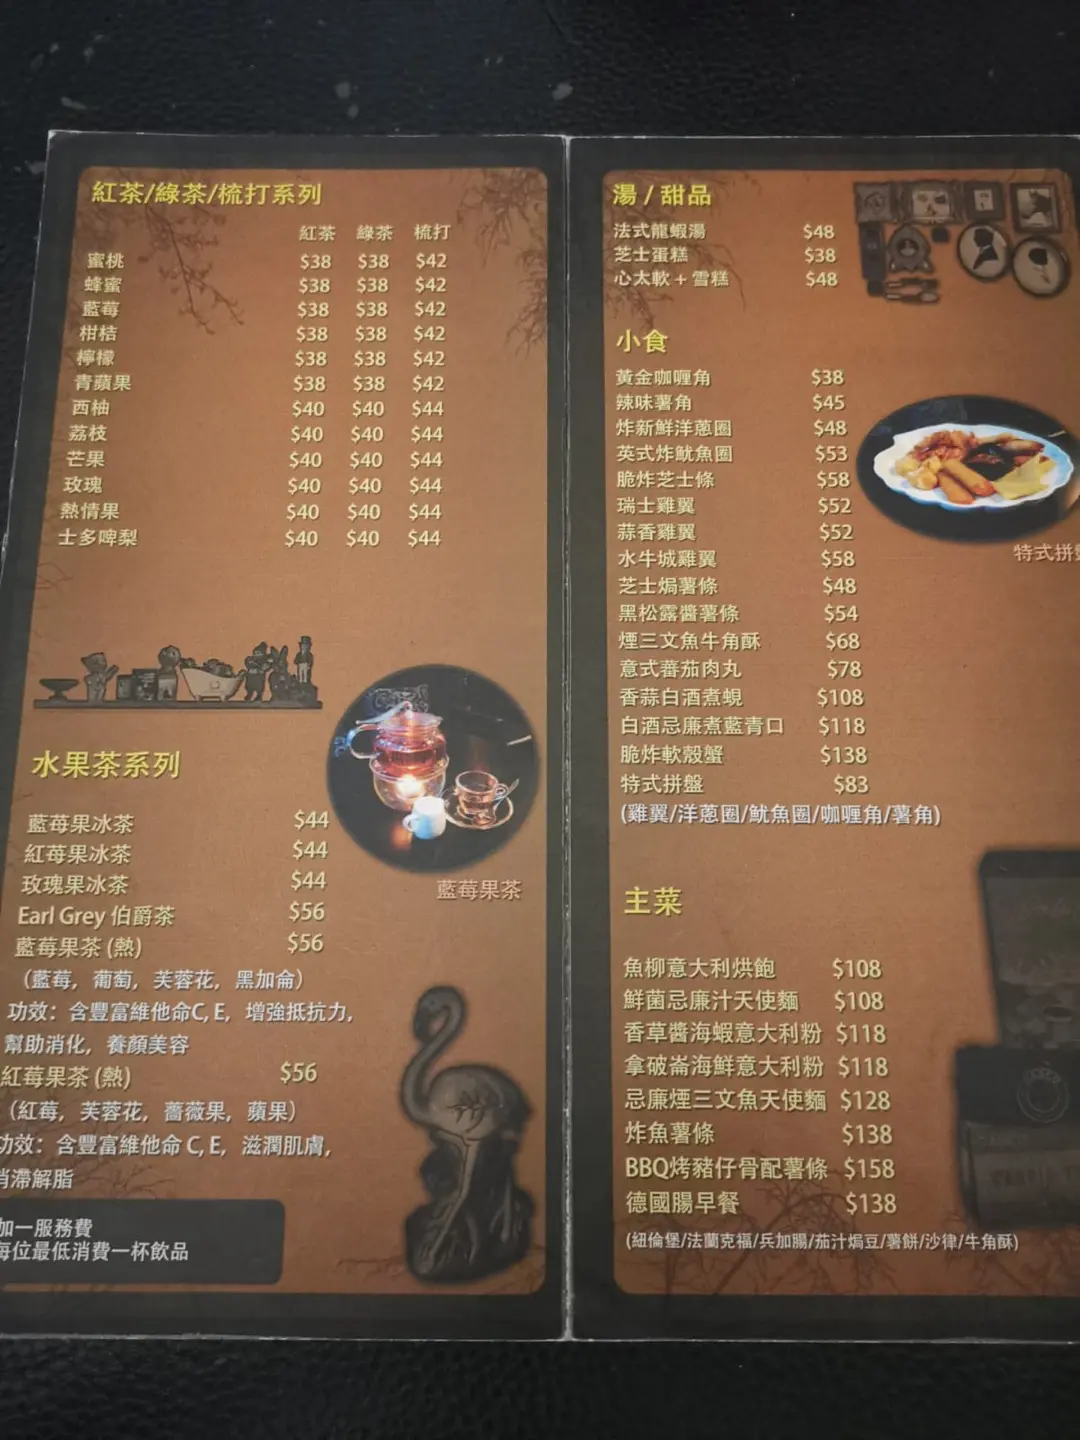 紅茶/綠茶/梳打系列
紅茶 綠茶 梳打
蜜桃 $38 $38 $42
蜂蜜 $38 $38 $42
藍莓 $38 $38 $42
柑桔 $38 $38 $42
檸檬 $38 $38 $42
青蘋果 $38 $38 $42
西柚 $40 $40 $44
荔枝 $40 $40 $44
芒果 $40 $40 $44
玫瑰 $40 $40 $44
熱情果 $40 $40 $44
士多啤梨 $40 $40 $44
水果茶系列
藍莓果冰茶 $44
紅莓果冰茶 $44
玫瑰果冰茶 $44
Earl Grey 伯爵茶 $56
藍莓果茶 (熱) $56
（藍莓，葡萄，芙蓉花，黑加侖）
功效：含豐富維他命C, E，增強抵抗力，
幫助消化，養顏美容
紅莓果茶 (熱) $56
（紅莓，芙蓉花，薔薇果，蘋果）
功效：含豐富維他命 C, E，滋潤肌膚，
消滯解脂
藍莓果茶
加一服務費
每位最低消費一杯飲品
湯 / 甜品
法式龍蝦湯 $48
芝士蛋糕 $38
心太軟 + 雪糕 $48
小食
黃金咖喱角 $38
辣味薯角 $45
炸新鮮洋蔥圈 $48
英式炸魷魚圈 $53
脆炸芝士條 $58
瑞士雞翼 $52
蒜香雞翼 $52
水牛城雞翼 $58
芝士焗薯條 $48
黑松露醬薯條 $54
煙三文魚牛角酥 $68
意式蕃茄肉丸 $78
香蒜白酒煮蜆 $108
白酒忌廉煮藍青口 $118
脆炸軟殼蟹 $138
特式拼盤 $83
(雞翼/洋蔥圈/魷魚圈/咖喱角/薯角)
特式拼盤
主菜
魚柳意大利烘飽 $108
鮮菌忌廉汁天使麵 $108
香草醬海蝦意大利粉 $118
拿破崙海鮮意大利粉 $118
忌廉煙三文魚天使麵 $128
炸魚薯條 $138
BBQ烤豬仔骨配薯條 $158
德國腸早餐 $138
(紐倫堡/法蘭克福/兵加腸/茄汁焗豆/薯餅/沙律/牛角酥)